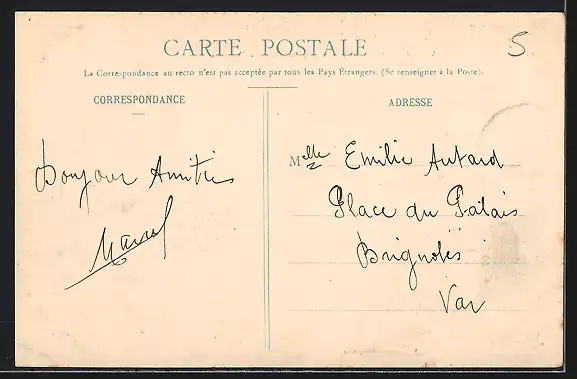 5
CARTE POSTALE
La Correspondance au recto n'est pas acceptée par tous les Pays Étrangers. (Se renseigner à la Poste).
CORRESPONDANCE
ADRESSE
Bonjour Amitiés
Marcel
Mlle Emilie Autard
Place du Palais
Brignoles
Var